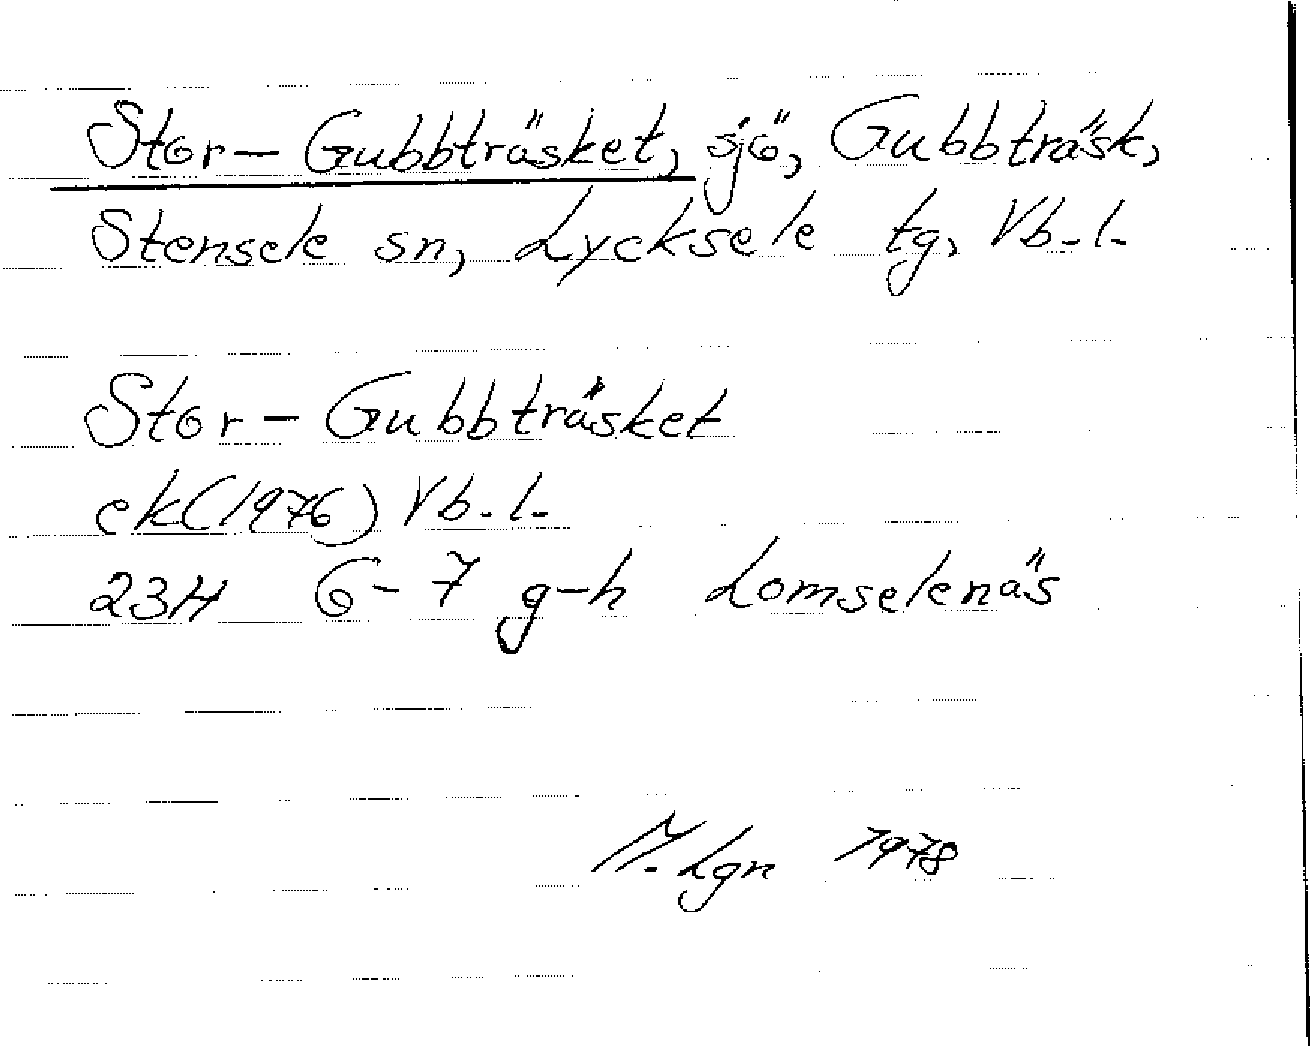 Stor-Gubbträsket, sjö, Gubbträsk,
Stensele sn, Lycksele tg, Vb. l.
Stor-Gubbträsket
ek (1976) Vb. l.
23H 6-7 g-h Lomselenäs
M. Lgn 1978